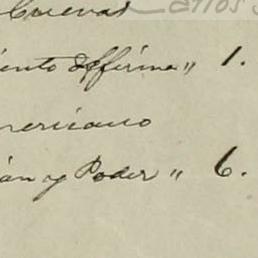 Cuevas
iento de firma " 1.
mericano
ión y Poder " 6.